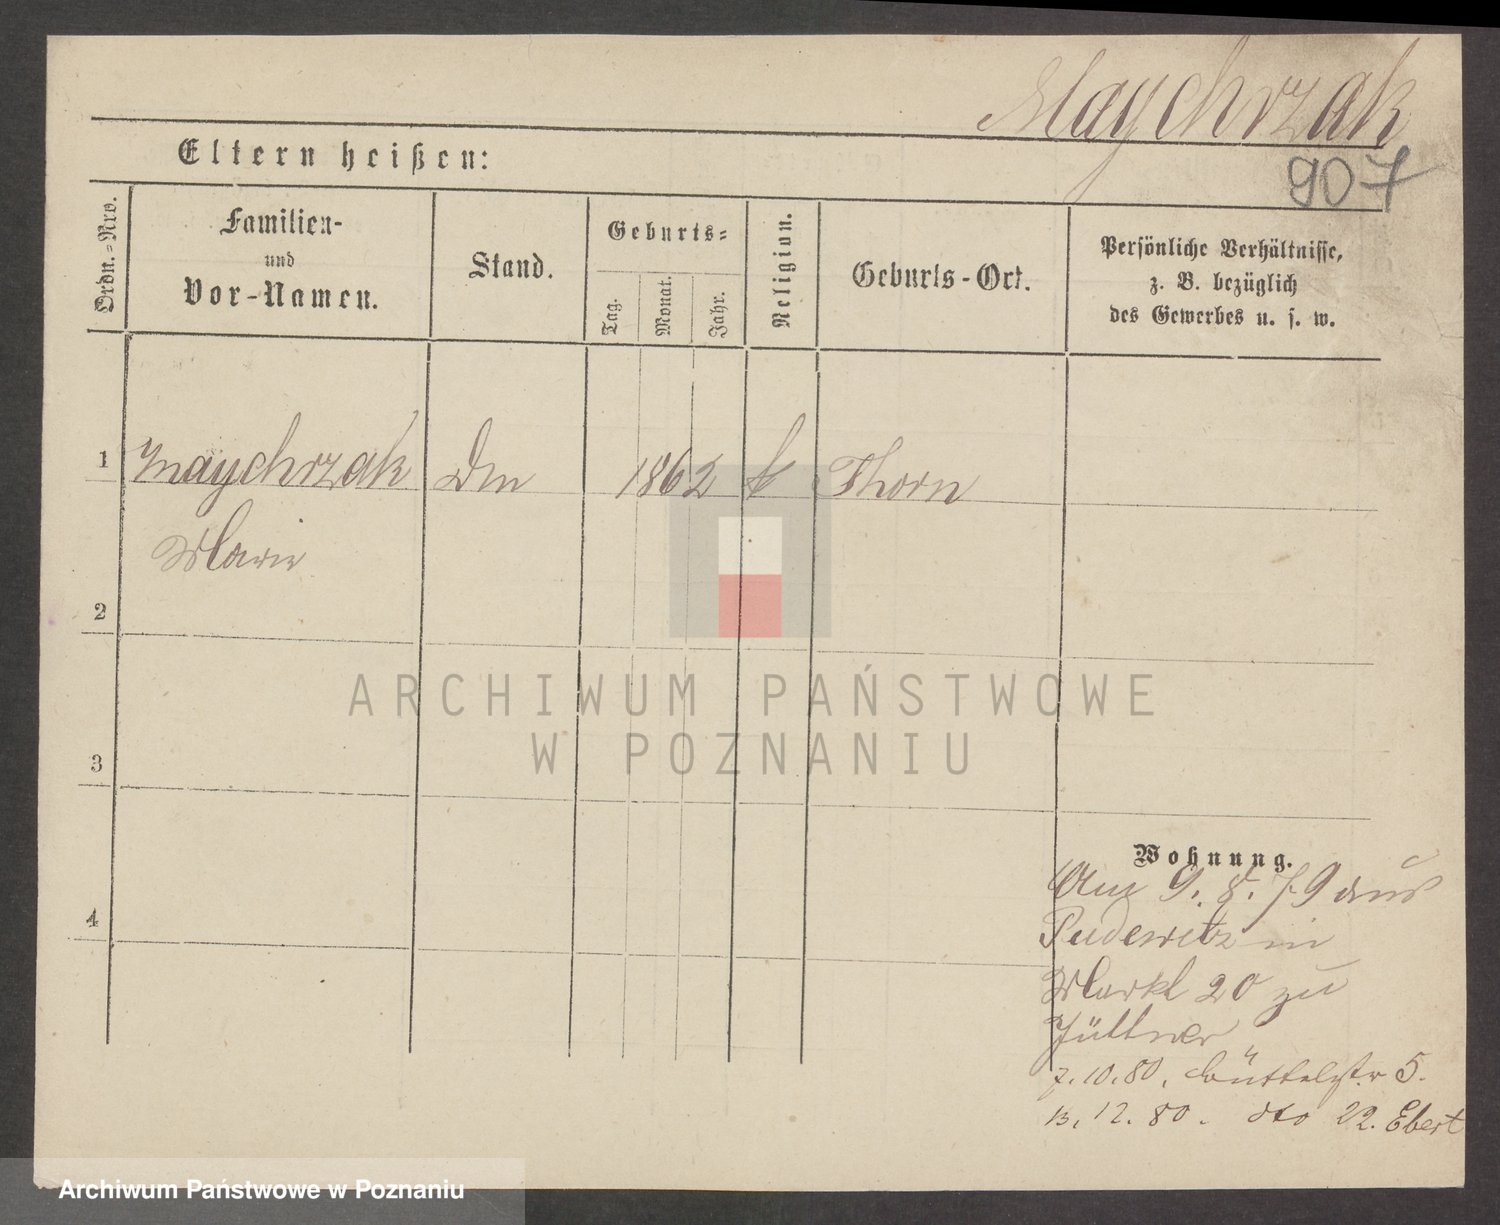 Maychrzak
907
Eltern heißen:
Ordn.-Nro.
Familien-
und
Vor-Namen.
Stand.
Geburts-
Tag.
Monat.
Jahr.
Religion.
Geburts-Ort.
Persönliche Verhältnisse,
z. B. bezüglich
des Gewerbes u. s. w.
1 Maychrzak 1862 Thorn
Marie
2
ARCHIWUM PAŃSTWOWE
W POZNANIU
3
Wohnung.
4
9. 8. 79 aus
Pudewitz in
Markt 20 zu
Jüttner
7. 10. 80. Büttelstr 5.
13. 12. 80. dto 22. Ebert
Archiwum Państwowe w Poznaniu